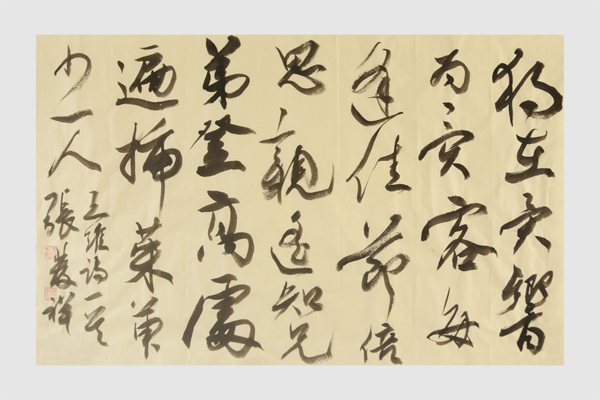 独在異響
為異客每
逢佳節倍
思親遙知兄
弟登高處
遍插茱萸
少一人
王維詩一首
張 祥